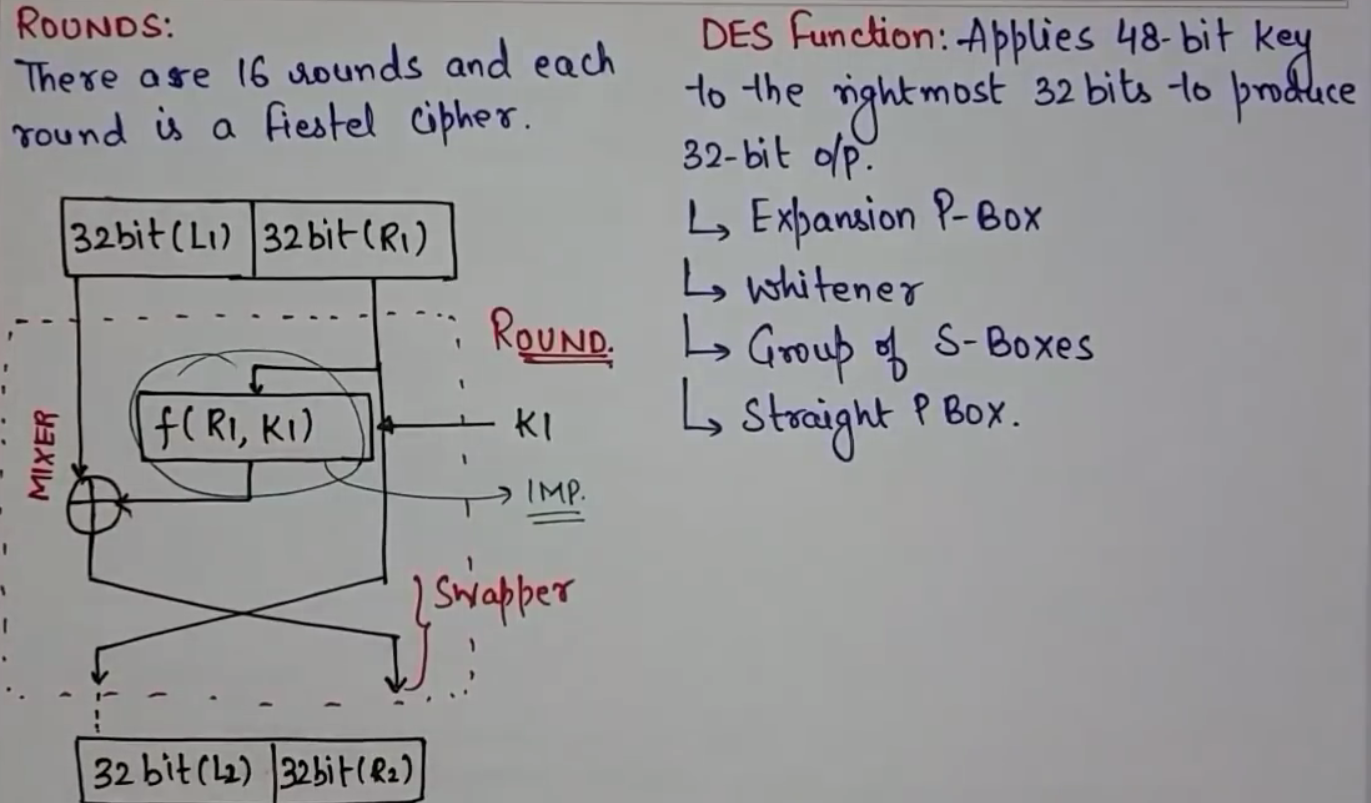 ROUNDS:
There are 16 rounds and each
round is a fiestel cipher.
32bit(L1) 32bit(R1)
ROUND.
MIXER
f(R1, K1)
K1
IMP.
Swapper
32 bit(L2) 32bit(R2)
DES Function: Applies 48-bit key
to the rightmost 32 bits to produce
32-bit o/p.
↳ Expansion P-Box
↳ Whitener
↳ Group of S-Boxes
↳ Straight P Box.